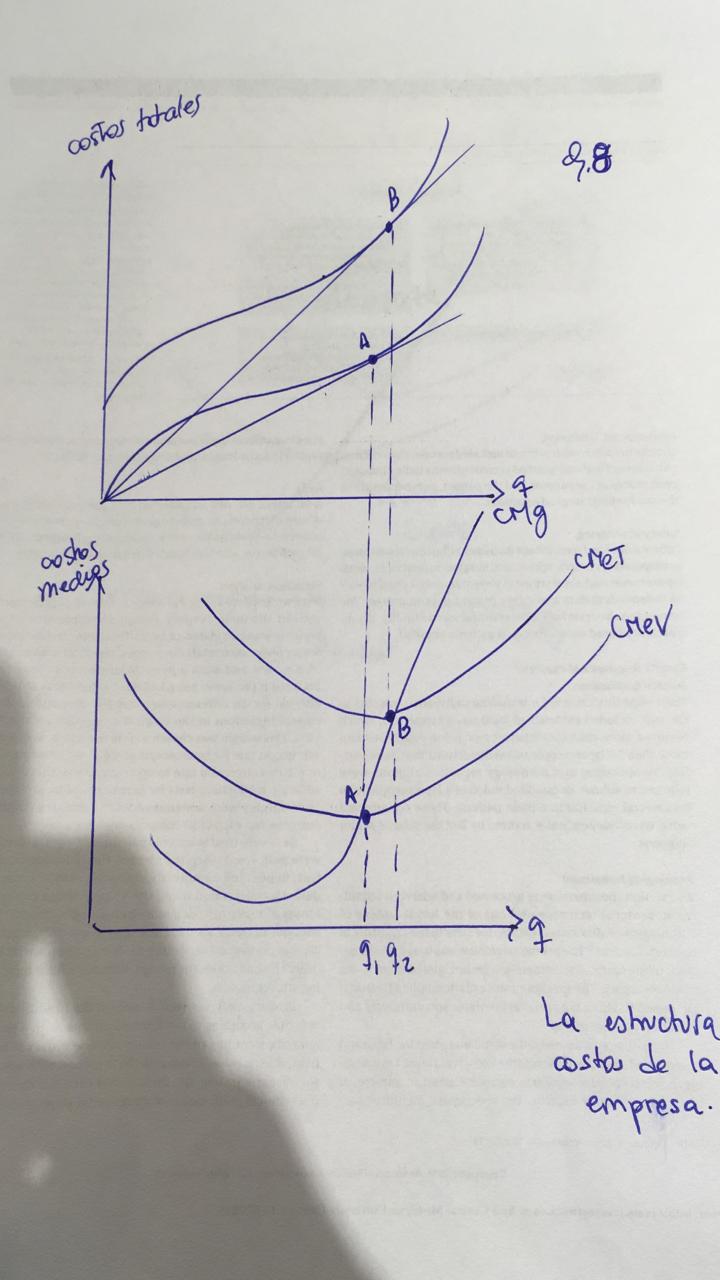 costos totales
9.8
B
A
q
CMg
costos
medios
CMeT
CMeV
B
A
q
q1 q2
La estructura
costos de la
empresa.